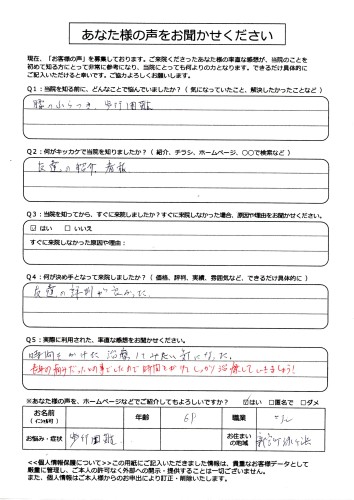 あなた様の声をお聞かせください
現在、「お客様の声」を募集しております。ご来院くださったあなた様の率直な感想が、当院のことを
初めて知る方にとって非常に参考になり、当院にとっても何よりの力となります。できるだけ具体的に
ご記入いただけると幸いです。ご協力よろしくお願いします。
Q1：当院を知る前に、どんなことで悩んでいましたか？（気になっていたこと、解決したかったことなど）
歩行困難
Q2：何がキッカケで当院を知りましたか？（紹介、チラシ、ホームページ、○○で検索など）
友達の紹介、看板
Q3：当院を知ってから、すぐに来院しましたか？すぐ来院しなかった場合、原因や理由をお聞かせください。
☑はい　□いいえ
すぐに来院しなかった原因や理由：
Q4：何が決め手となって来院しましたか？（価格、評判、実績、雰囲気など、できるだけ具体的に）
友達の評判が良かった
Q5：実際に利用された、率直な感想をお聞かせください。
時間をかけた治療してみたい気になった。
時間をかけてしっかり治療していきましょう!
※あなた様の声を、ホームページなどでご紹介してもよろしいですか？ ☑はい □匿名で □ダメ
お名前
(イニシャル可)
年齢
68
職業
お悩み・症状
歩行困難
お住まい
の地域
<<個人情報保護について>>この用紙にご記入いただきました情報は、貴重なお客様データとして
厳重に管理し、ご本人の許可なく外部への開示・提供することは一切ございません。
また、個人情報はご本人様からのお申出により訂正・削除いたします。